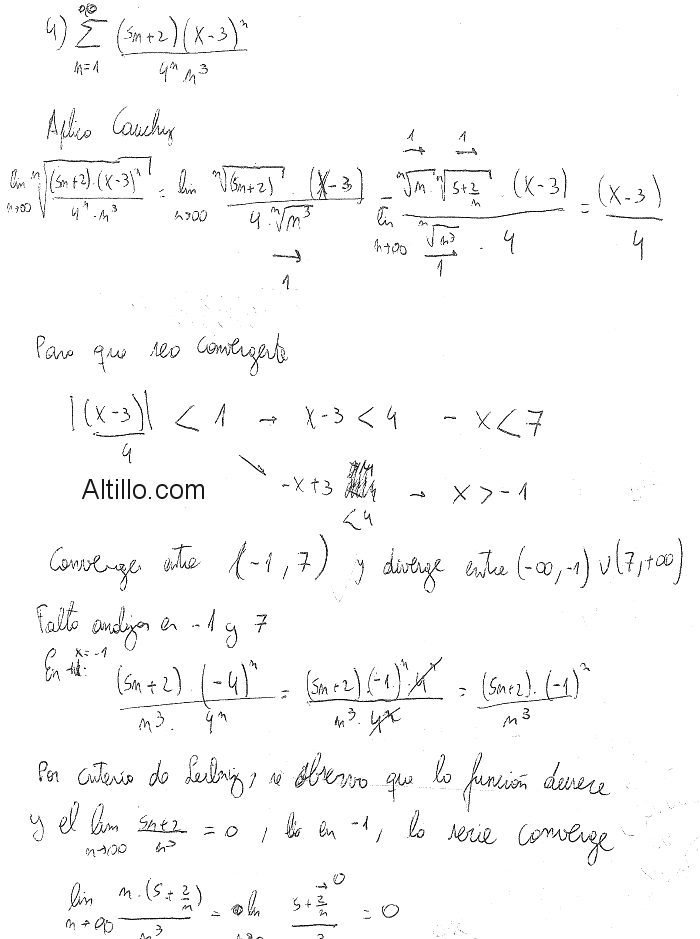 4) ∞ ∑ n=1 (5n+2)(x-3)^n / 4^n . n^3
Aplico Cauchy
lim n→∞ ⁿ√((5n+2).(x-3)^n / 4^n . n^3) = lim n→∞ ⁿ√(5n+2) . (x-3) / 4 . ⁿ√n^3 → 1 = lim n→∞ ⁿ√n → 1 . ⁿ√(5+2/n) → 1 . (x-3) / ⁿ√n^3 → 1 . 4 = (x-3) / 4
Para que sea convergente
|(x-3) / 4| < 1 → x-3 < 4 - x < 7
↘ -x+3 < 4 → x > -1
Altillo.com
Converge entre (-1, 7) y diverge entre (-∞, -1) ∪ (7, +∞)
Falta analizar en -1 y 7
En x=-1: (5n+2) . (-4)^n / n^3 . 4^n = (5n+2) . (-1)^n . 4^n / n^3 . 4^n = (5n+2) . (-1)^n / n^3
Por criterio de Leibniz, se observa que la función decrece
y el lim n→∞ 5n+2 / n^3 = 0, en -1, la serie converge
lim n→∞ n . (5+2/n) / n^3 = lim 5+2/n → 0 = 0